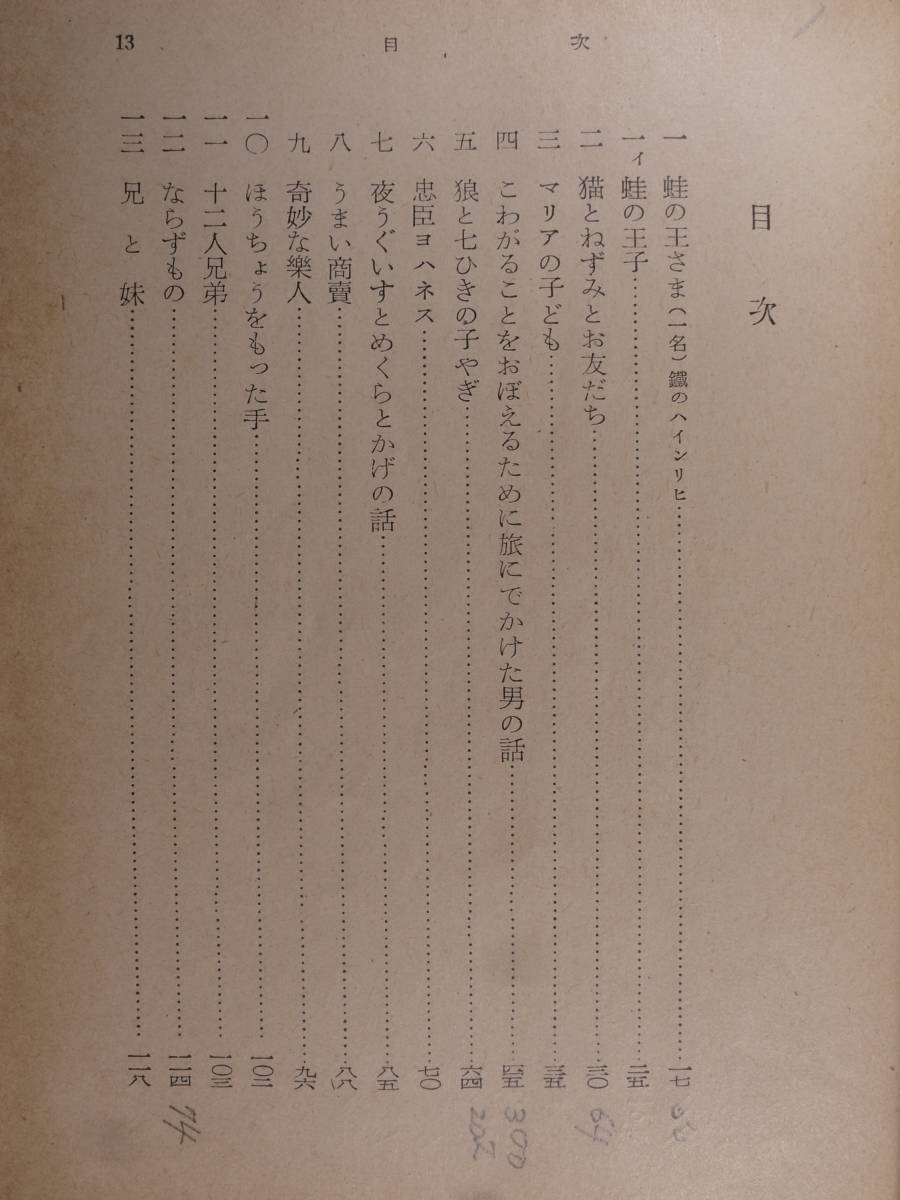 13 目次
目次
一 蛙の王さま(一名)鐵のハインリヒ……一七
一ィ 蛙の王子……二五
二 猫とねずみとお友だち……三〇
三 マリアの子ども……三五
四 こわがることをおぼえるために旅にでかけた男の話……四五
五 狼と七ひきの子やぎ……六四
六 忠臣ヨハネス……七〇
七 夜うぐいすとめくらとかげの話……八五
八 うまい商賣……八八
九 奇妙な樂人……九六
一〇 ほうちょうをもった手……一〇二
一一 十二人兄弟……一〇三
一二 ならずもの……一一四
一三 兄と妹……一一八
300
202
74